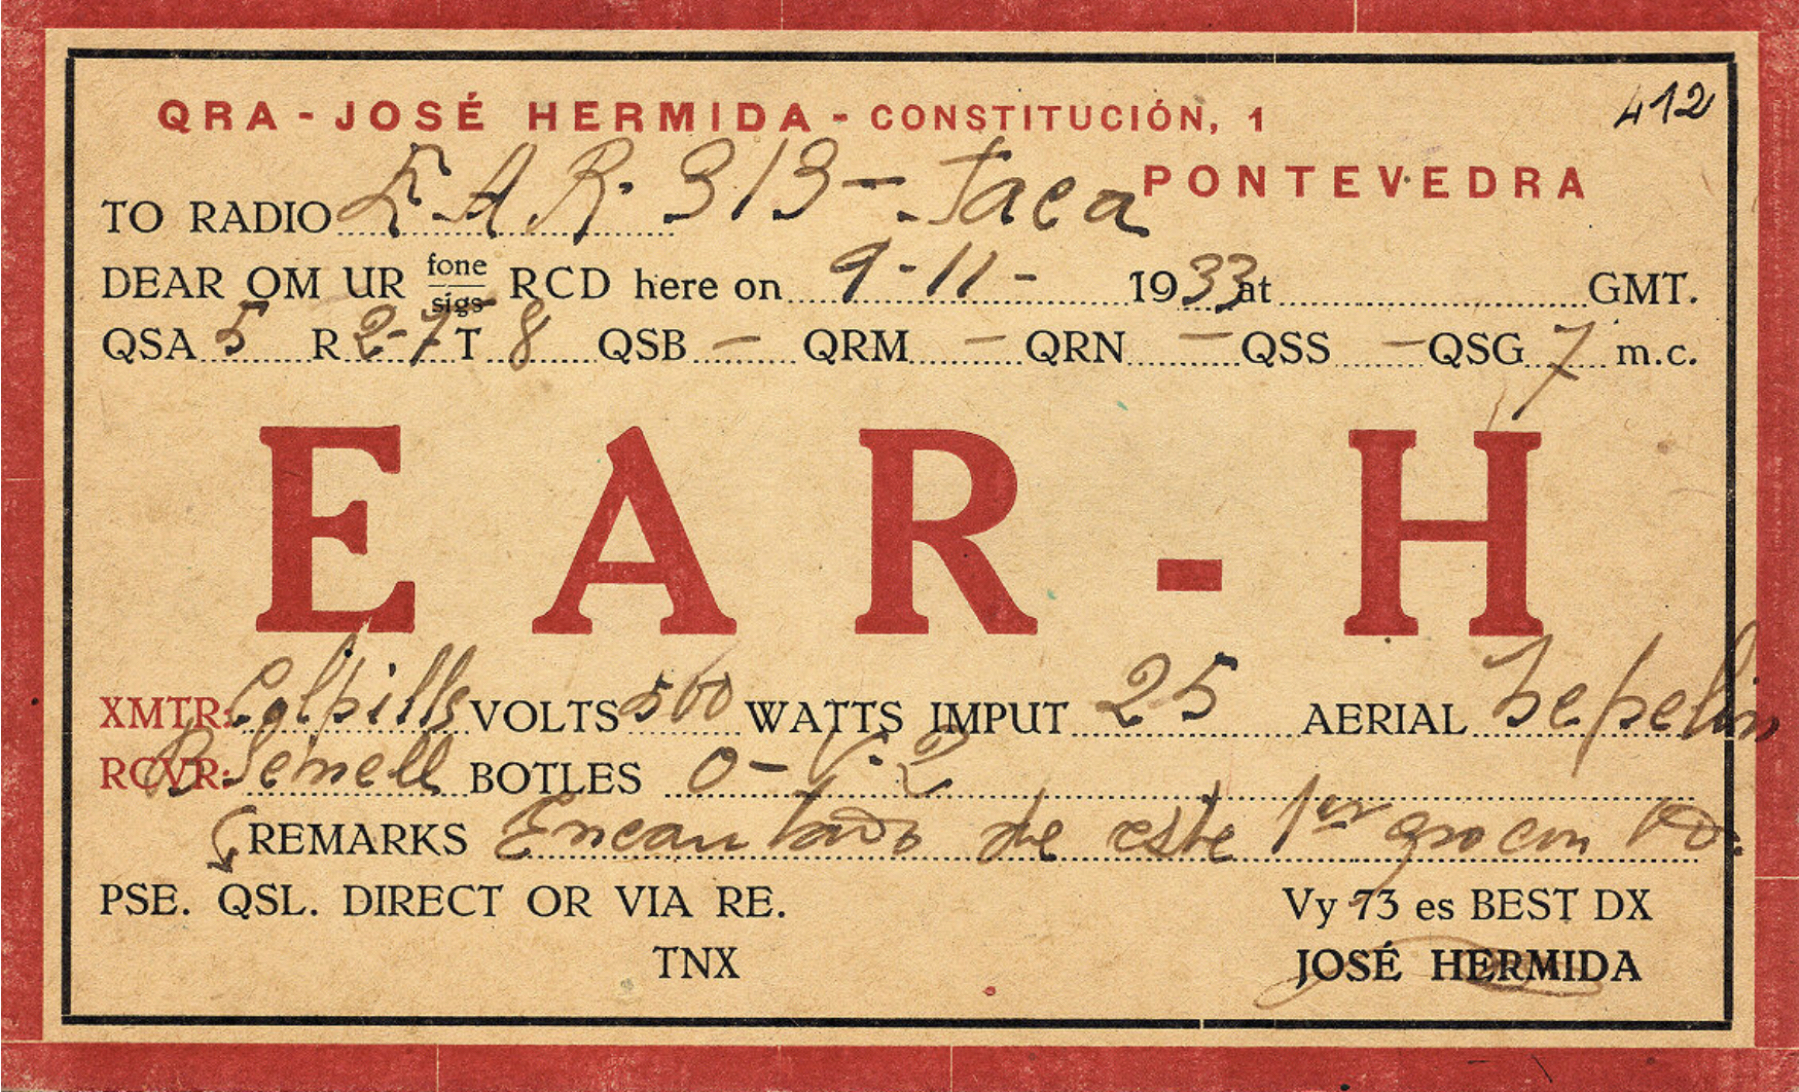 412
QRA - JOSÉ HERMIDA - CONSTITUCIÓN, 1
PONTEVEDRA
TO RADIO EAR. 313 - Jaca
DEAR OM UR fone sigs RCD here on 9-11- 1933 at GMT.
QSA 5 R 2-7 T 8 QSB - QRM - QRN - QSS - QSG 7 m.c.
EAR-H
XMTR: VOLTS 500 WATTS IMPUT 25 AERIAL Zepelin
RCVR: BOTLES 0-V-2
REMARKS Encantado de este 1er qso con Vd.
PSE. QSL. DIRECT OR VIA RE. Vy 73 es BEST DX
TNX JOSÉ HERMIDA